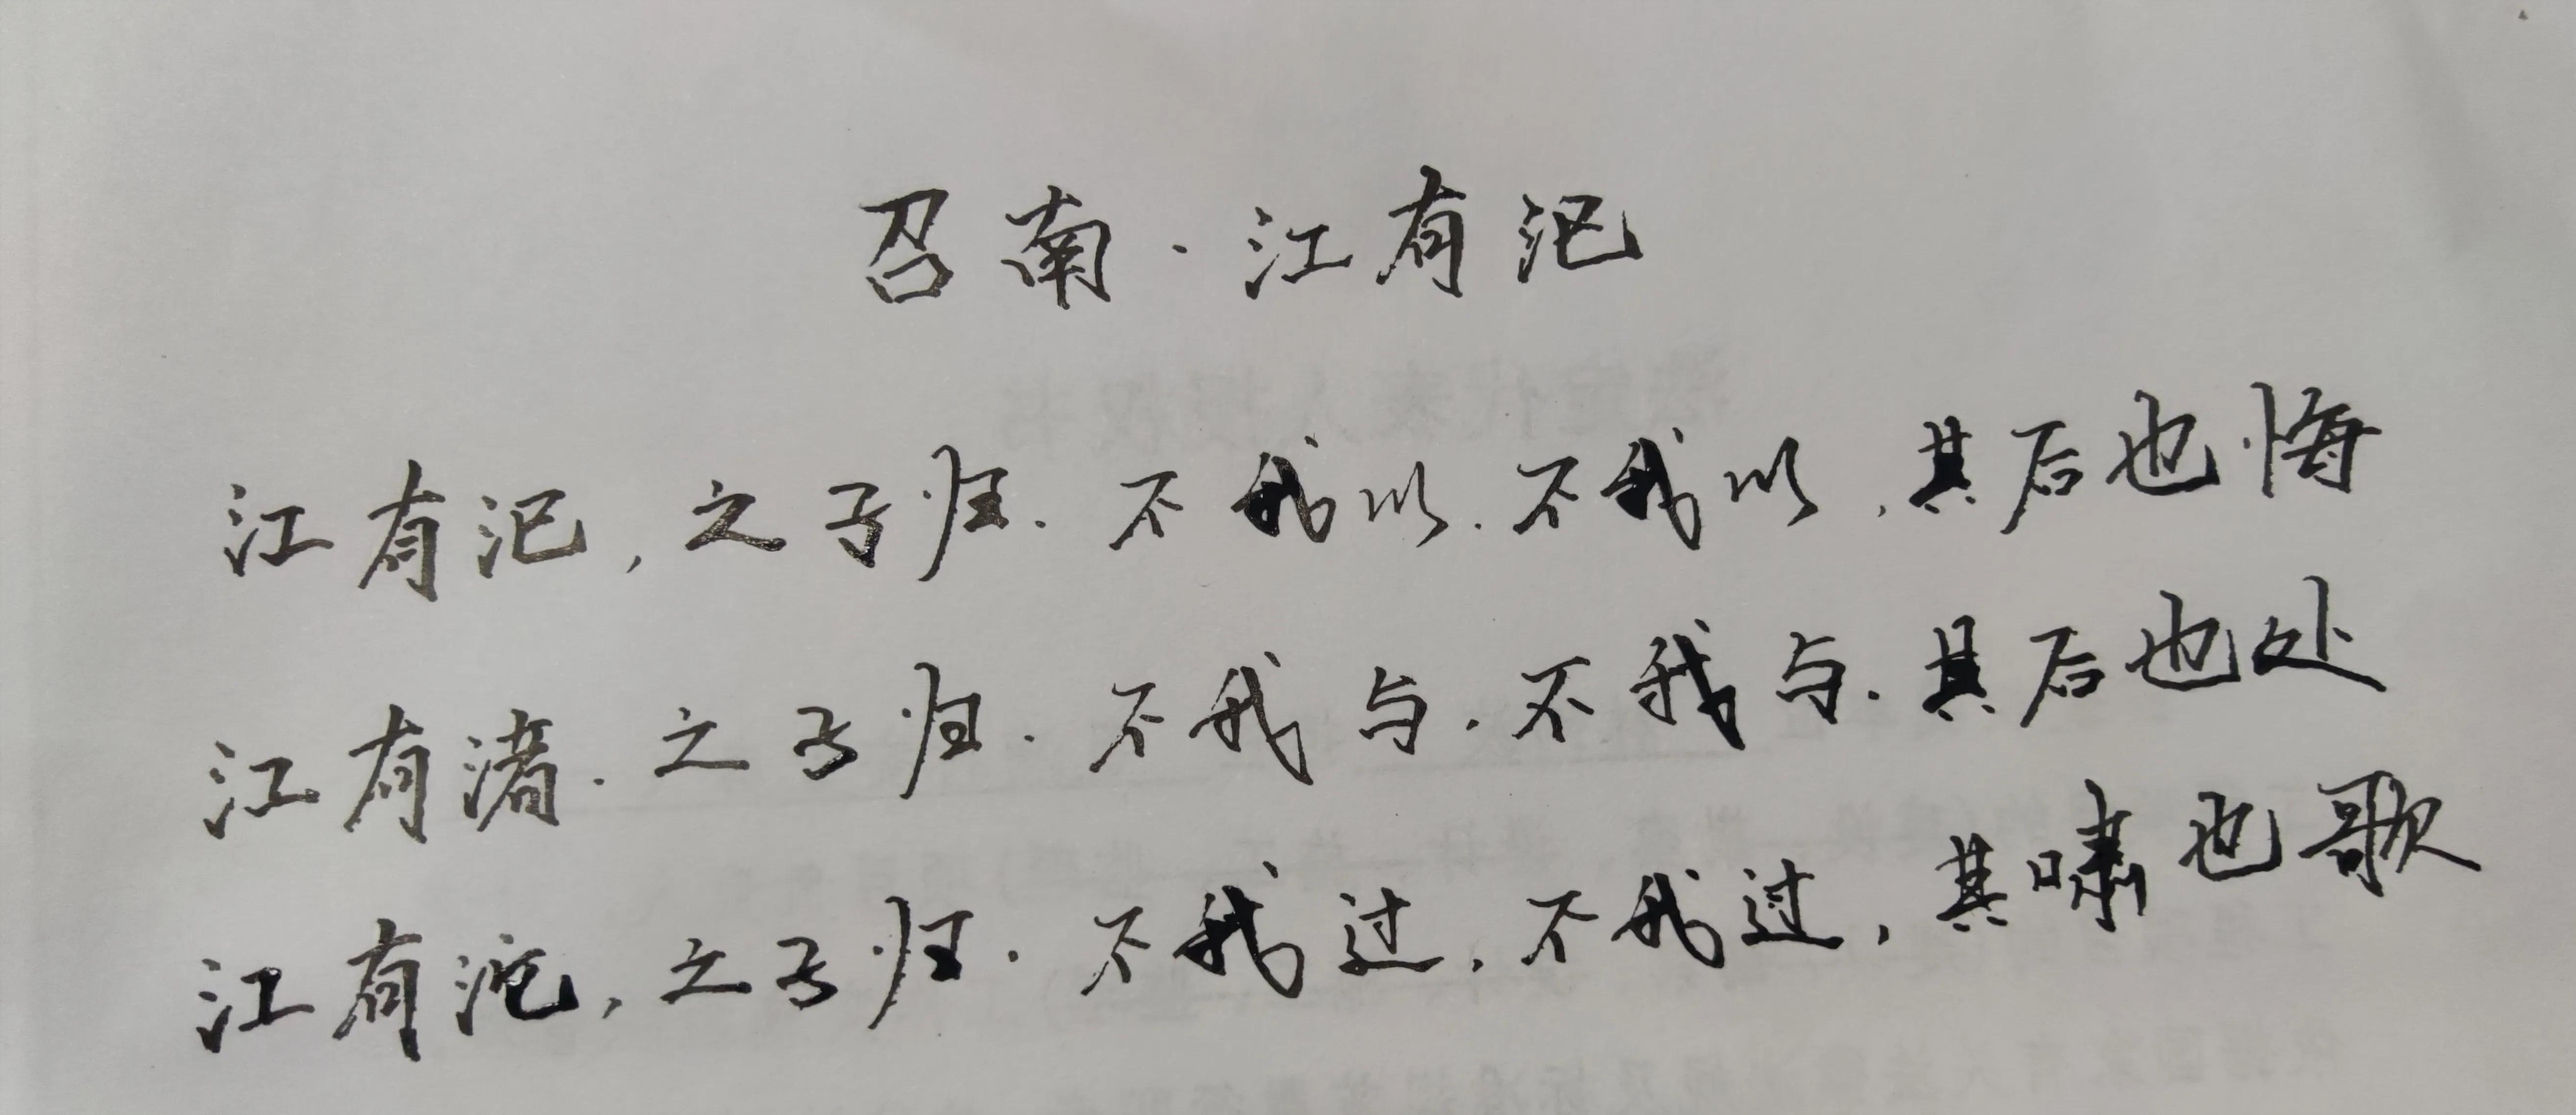 召南·江有汜
江有汜,之子归.不我以.不我以,其后也悔
江有渚.之子归.不我与.不我与.其后也处
江有沱,之子归.不我过,不我过,其啸也歌